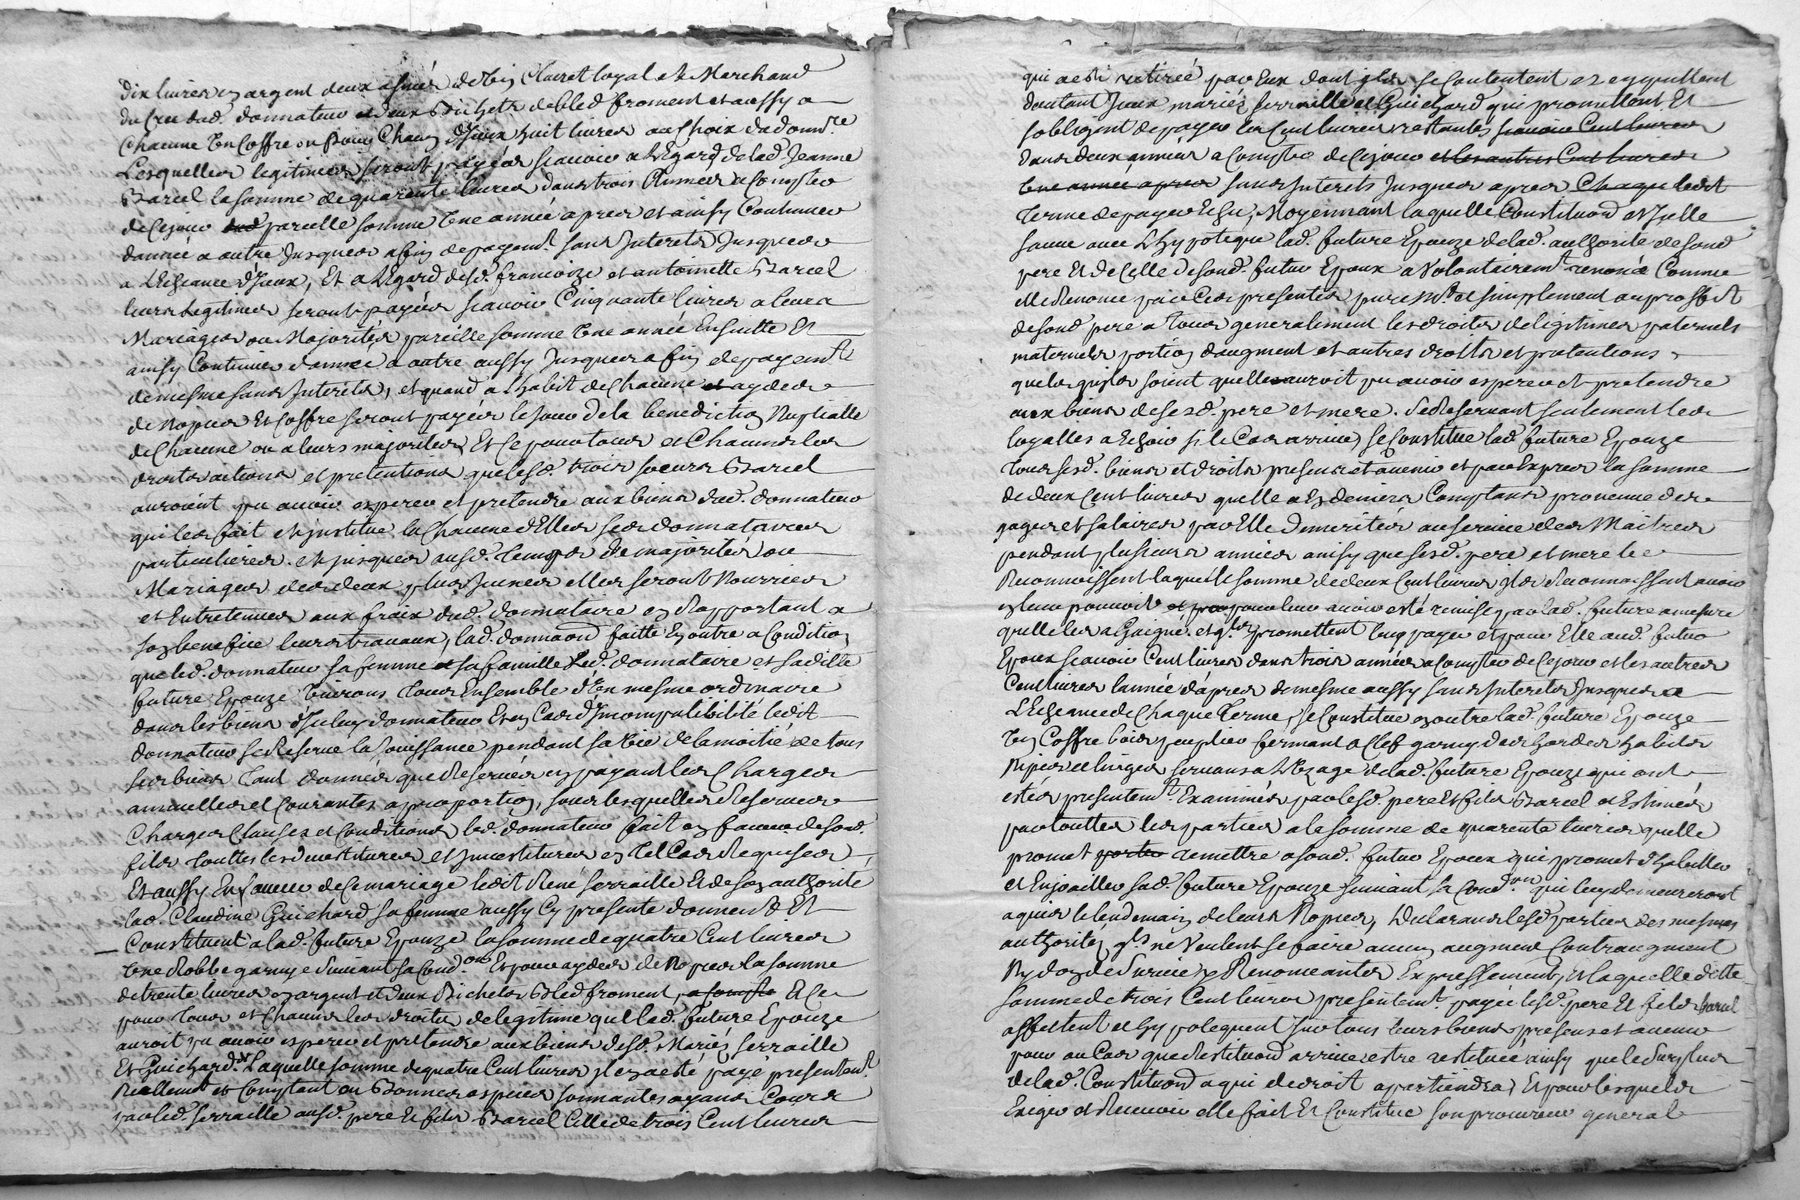 dix livres en argent deux asnées de vin Clairet loyal et Marchand
du Cru dud. donnateur et deux Bichets de bled froment et aussy a
Chacune un Coffre en bois Chacun d'Iceux huit livres au Choix dud donn.re
Lesquelles legitimes seront payées scavoir a L'Egard de lad. Jeanne
Barcel la somme de quarente livres dans trois Années a Compter
de Cejour pareille somme une année apres et ainsy Continuer
d'année a autre Jusques a fin de payem.t sans Interets Jusques
a L'Echeance d'Iceux, Et a L'Egard desd. francoize et antoinette Barcel
leurs Legitimes seront payées scavoir Cinquante livres a leurs
Mariages ou Majorités pareille somme une année Ensuitte Et
ainsy Continuer d'année a autre aussy Jusques a fin de payem.t
de mesme sans Interets, et quand a L'habit de Chacune et aydes
de Nopces Et Coffre seront payes le Jour de la benediction Nuptialle
de Chacune ou a leurs majorites, Et Ce pour tous et Chacuns les
droits actions et pretentions que lesd. trois soeurs Barcel
auroient pu avoir esperer et pretendre aux biens dud. donnateur
qui les fait et institue la Chacune d'Elles ses donnataires
particulieres. et jusques ausd. temps de majorités ou
Mariages des deux plus Jeunes elles seront Nourries
et Entretenues aux fraix dud. donnataire en Rapportant a
son benefice leurs travaux, lad. donnaon faitte En outre a Condition
que led. donnateur sa femme et sa famille led. donnataire et sa ditte
future Epouze vivrons tous Ensemble d'un mesme ordinaire
dans les biens d'Iceluy donnateur Et en Cas d'Incompatibilité ledit
donnateur se Reserve la Jouissance pendant sa vie de la moitié de tous
ses biens tant donnés que Reservés en payant les Charges
annuelles et Courantes a proportion, sous lesquelles Reserves
Charges Clauses et Conditions led. donnateur fait en faveur de sond.
fils touttes les devestitures et Investitures en tel Cas Requises
Et aussy En faveur de Ce mariage ledit René Serraille Et de son authorité
lad. Claudine Guichard sa femme aussy Cy presente donnent Et
Constituent a lad. future Epouze la somme de quatre Cent livres
Une Robbe garnye suivant sa Cond.on Et pour aydes de Nopces la somme
de trente livres en argent et deux Bichets Bled froment, a compte Et Ce
pour tous et Chacuns les droits de legitime que lad. future Epouze
auroit pu avoir esperer et pretendre aux biens desd. Mariés Serraille
Et Guichard. Laquelle somme de quatre Cent livres il en a eté payé presentem.t
Reellement et Comptant en Bonnes especes sonnantes ayant Cours
par led. Serraille ausd. pere Et fils Barcel Celle de trois Cent livres
qui a esté retirée par Eux dont ils se Contentent et en quittent
d'autant Iceux mariés Serraille et Guichard qui promettent Et
s'obligent de payer les Cent livres restantes scavoir Cent livres
dans deux années a Compter de Cejour et les autres Cent livres
une année apres sans Interets Jusques apres Chaque ledit
terme de payer Echu, Moyennant laquelle Constituon et Icelle
sauve avec L'hypoteque lad. future Epouze de lad. authorité de sond
pere Et de Celle de sond. futur Epoux a Volontairem.t renoncé Comme
elle Renonce par Ces presentes purem.t et simplement au proffit
de sond pere a tous generalement les droits de legitimes paternels
maternels portion d'augment et autres droits et pretentions
quels qu'ils soient quelle auroit pu avoir esperer et pretendre
aux biens de sesd. pere et mere. se Reservant seulement les
loyalles a Echoir si le Cas arrive, se Constitue lad. future Epouze
tous sesd. biens et droits presens et avenir et par Expres la somme
de deux Cent livres quelle a En deniers Comptans provenue des
gages et salaires par Elle demerités au service des Maitres
pendant plusieurs années ainsy que sesd. pere et mere le
Reconnoissent laquelle somme de deux Cent livres Ils Reconnoissent avoir
en leur pouvoir pour leur avoir eté remise par lad. future a mesure
quelle les a Gaigné. et quils promettent luy payer et pour Elle aud. futur
Epoux scavoir Cent livres dans trois années a Compter de Cejour et les autres
Cent livres l'année d'apres de mesme aussy sans Interets Jusques a
L'Echeance de Chaque terme, se Constitue en outre lad. future Epouze
un Coffre bois peuplier fermant a Clef garny de ses hardes habits
Nipes et linges servans a L'Uzage de lad. future Epouze qui ont
eté presentem.t Examinés par lesd. pere Et fils Barcel et Estimés
par touttes les parties a la somme de quarente livres quelle
promet porter remettre a sond. futur Epoux qui promet d'habiller
et Enjoailler sad. future Epouze suivant sa Cond.on qui luy demeureront
aquis le lendemain de leurs Nopces, Declarans lesd parties des mesmes
authorités quils ne Veulent se faire aucun augment Contraugment
Ny don de survie y Renonceantes Expressement, et laquelle ditte
somme de trois Cent livres presentem.t payée lesd. pere Et fils Barcel
affectent et hypotequent sur tous leurs biens presens et avenir
pour au Cas que Restituon arrive estre restituée ainsy que le surplus
de lad. Constituon a qui de droit apartiendra, Et pour lesquels
Exiger et Recevoir elle fait Et Constitue son procureur general